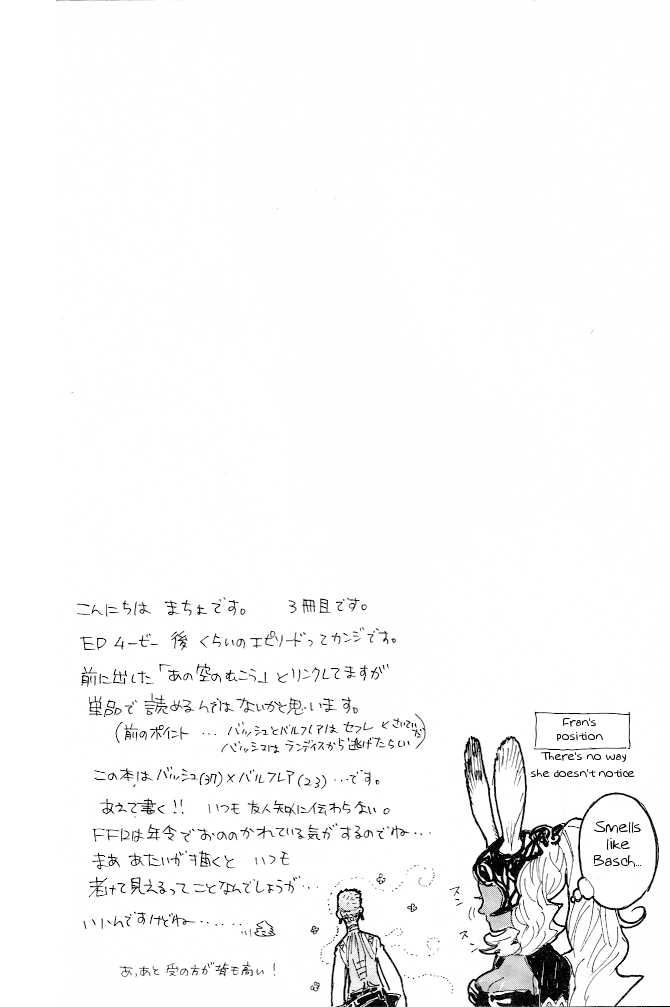 こんにちは まちょです。 3冊目です。
ED 4ーゼー 後 くらいのエピソードってカンジです。
前に出した「あの空のむこう」とリンクしてますが
単品で読めるんではないかと思います。
(前のポイント … バッシュとバルフレアは セフレ
バッシュは ランディスから逃げたらしい)
この本は バッシュ(37)×バルフレア(23)…です。
あえて書く!! いつも 友人知に伝わらない。
FF12は年令でおののかれている気がするのでね…
まあ あたいが描くと いつも
老けて見えるって ことなんでしょうが…
いいんですけどね……
あ、あと 受の方が 背も高い!
Fran's
position
There's no way
she doesn't notice
Smells
like
Basch...
スン
スン